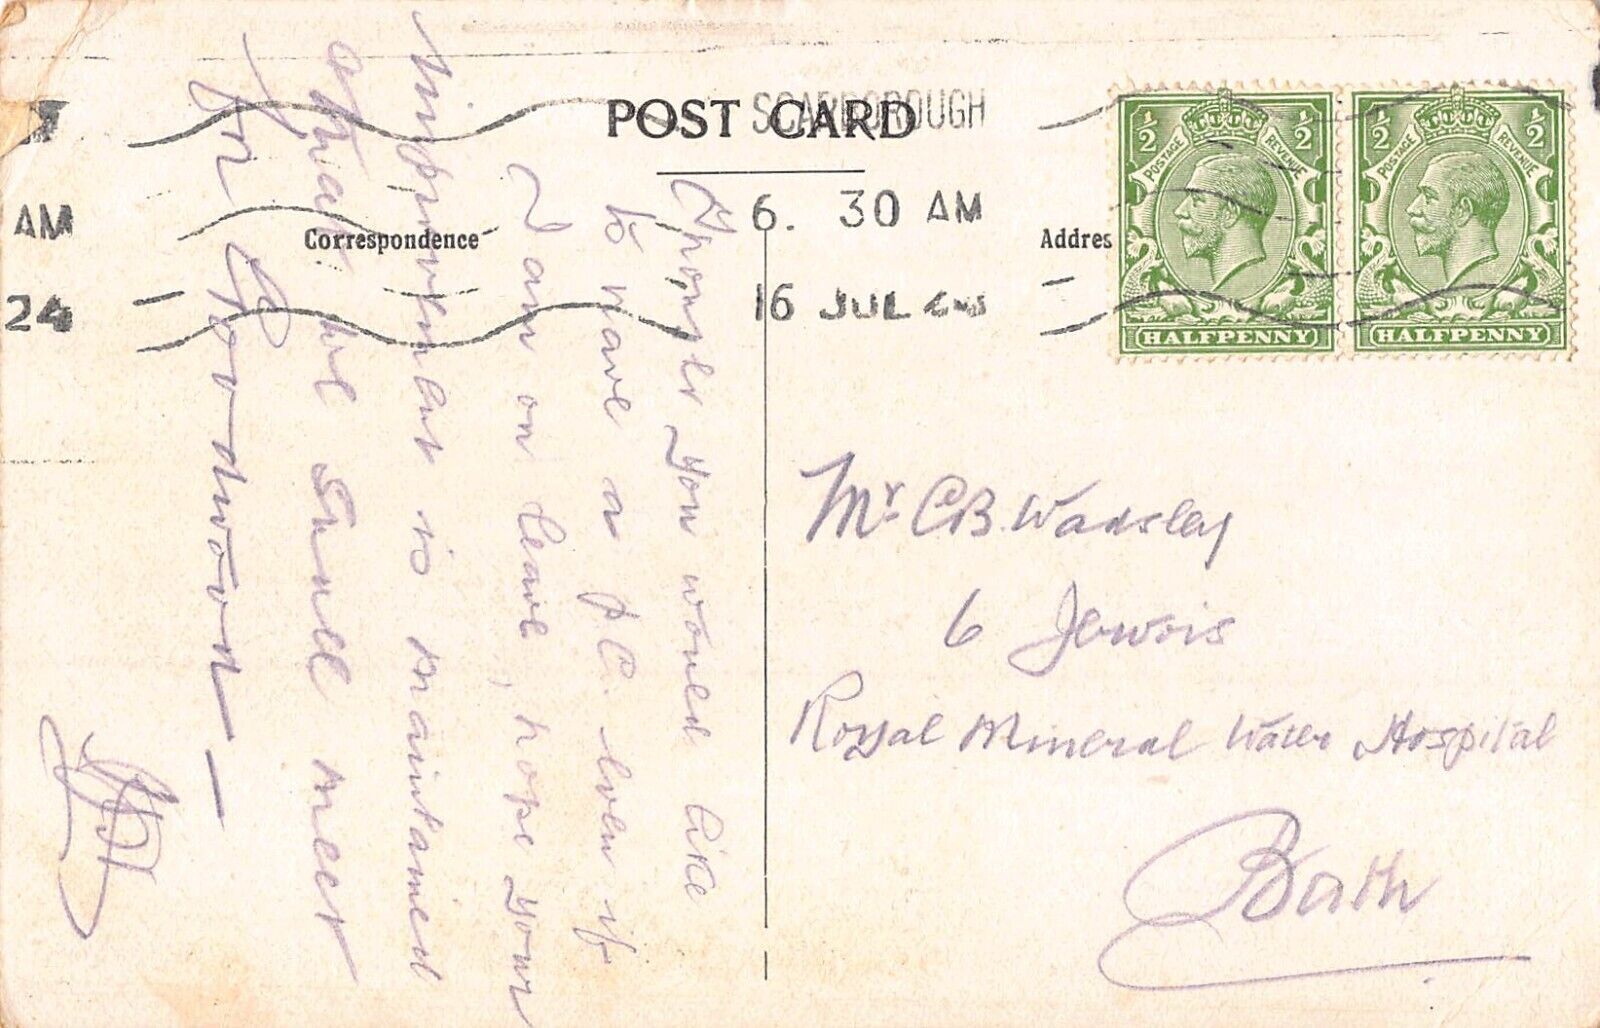 POST CARD
SCARBOROUGH
6. 30 AM
16 JUL
AM
24
Correspondence
Addres
1/2 POSTAGE REVENUE 1/2
HALFPENNY
1/2 POSTAGE REVENUE 1/2
HALFPENNY
Thought you would like
to have a p.c. even if
I am on leave, hope your
improvement is maintained
& that we shall meet
for Goodwood —
Mr C B Wadsley
6
Royal Mineral Water Hospital
Bath